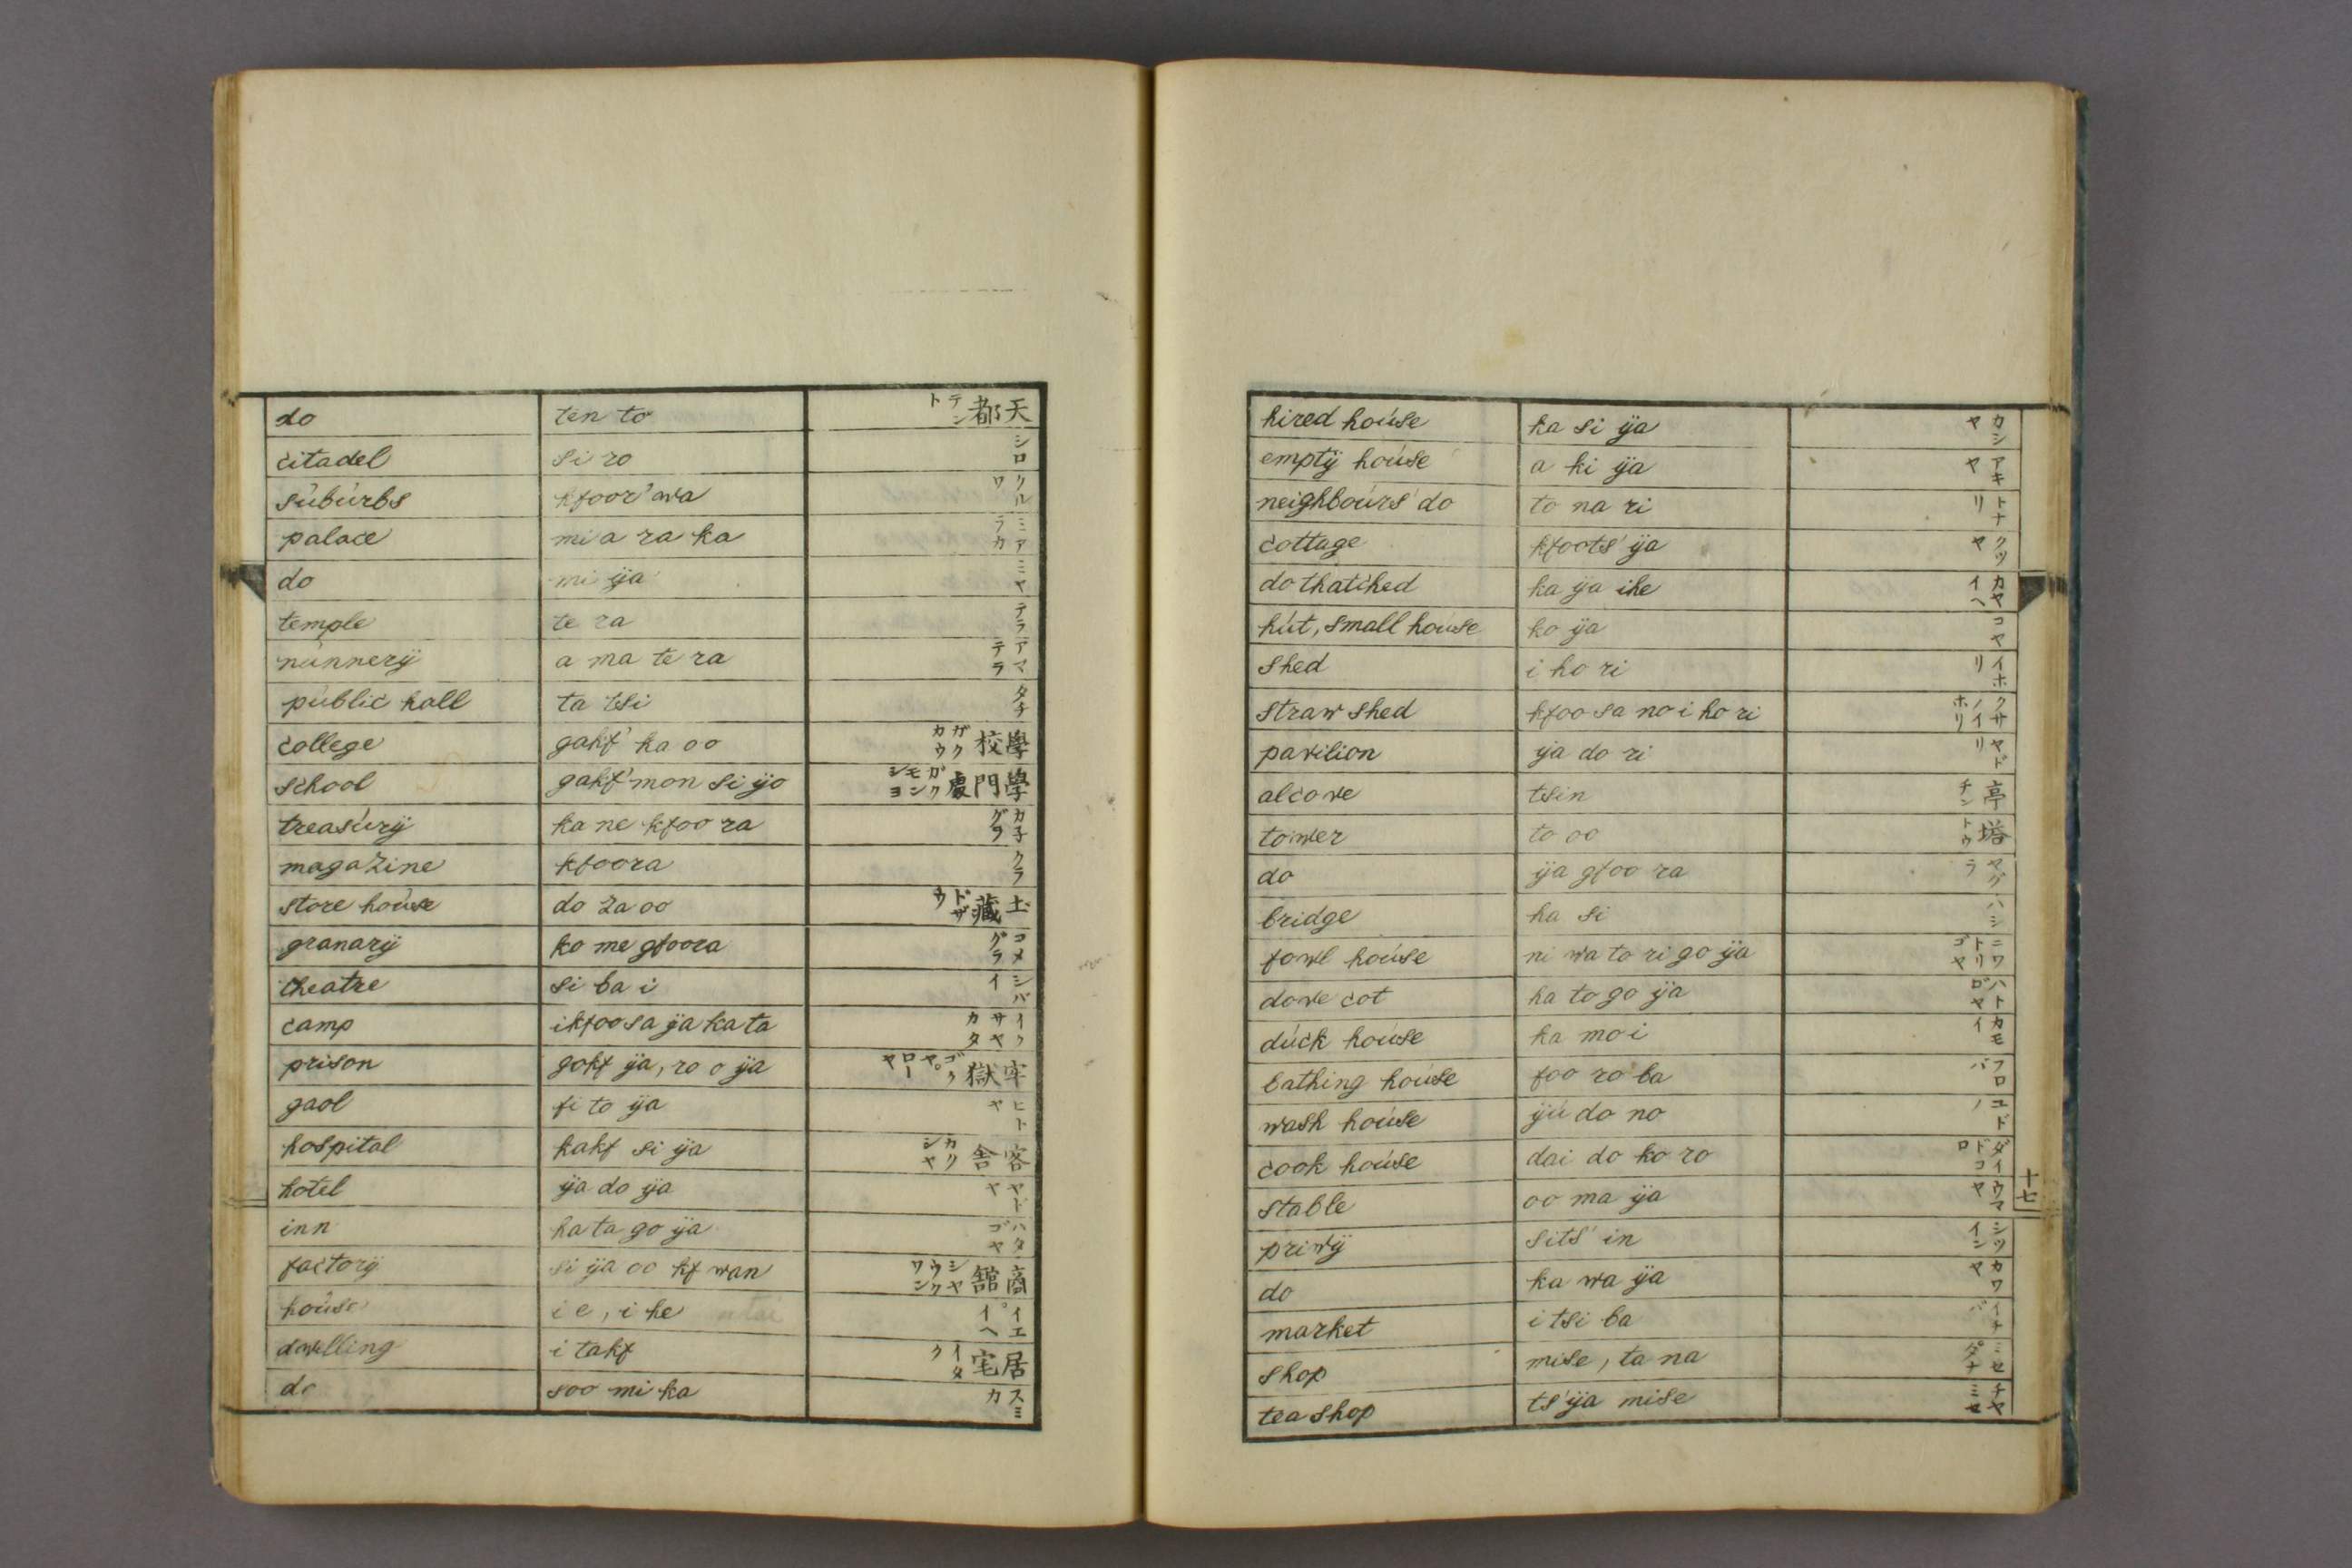 do ten to 天都 テント
citadel si ro シロ
súbúrbs kfoor' wa クルワ
palace mi a ra ka ミアラカ
do mi ÿa ミヤ
temple te ra テラ
núnnerÿ a ma te ra アマテラ
públic hall ta tsi タチ
college gakf' ka oo 學校 ガクカウ
school gakf' mon si ÿo 學門處 ガクモンシヨ
treasúrÿ ka ne kfoo ra カ子グラ
magazine kfoora クラ
store hoúse do za oo 土藏 ドザウ
granarÿ ko me gfoora コメグラ
theatre si ba i シバイ
camp ikfoosa ÿa ka ta イクサヤカタ
prison gokf ÿa, ro o ÿa 牢獄 ゴクヤ。ローヤ
gaol fi to ÿa ヒトヤ
hospital kakf si ÿa 客舎 カクシヤ
hotel ÿa do ÿa ヤドヤ
inn ha ta go ÿa ハタゴヤ
factorÿ si ÿa oo kf wan 商舘 シヤウクワン
hoúse i e, i he イエ。イヘ
dwelling i takf 居宅 イタク
do soo mi ka スミカ
hired hoúse ka si ÿa カシヤ
emptÿ hoúse a ki ÿa アキヤ
neighboúrs' do to na ri トナリ
cottage kfoots' ÿa クツヤ
do thatched ka ÿa ihe カヤイヘ
hút, small hoúse ko ÿa コヤ
shed i ho ri イホリ
straw shed kfoo sa no i ho ri クサノイホリ
pavilion ÿa do ri ヤドリ
alcove tsin 亭 チン
tower to oo 塔 トウ
do ÿa gfoo ra ヤグラ
bridge ha si ハシ
fowl hoúse ni wa to ri go ÿa ニワトリゴヤ
dove cot ha to go ÿa ハトゴヤ
dúck hoúse ka mo i カモイ
bathing hoúse foo ro ba フロバ
wash hoúse ÿú do no ユドノ
cook hoúse dai do ko ro ダイドコロ
stable oo ma ÿa ウマヤ
privÿ sits' in シツイン
do ka wa ÿa カワヤ
market i tsi ba イチバ
shop mise, ta na ミセ ダナ
tea shop ts' ÿa mise チヤミセ
十七